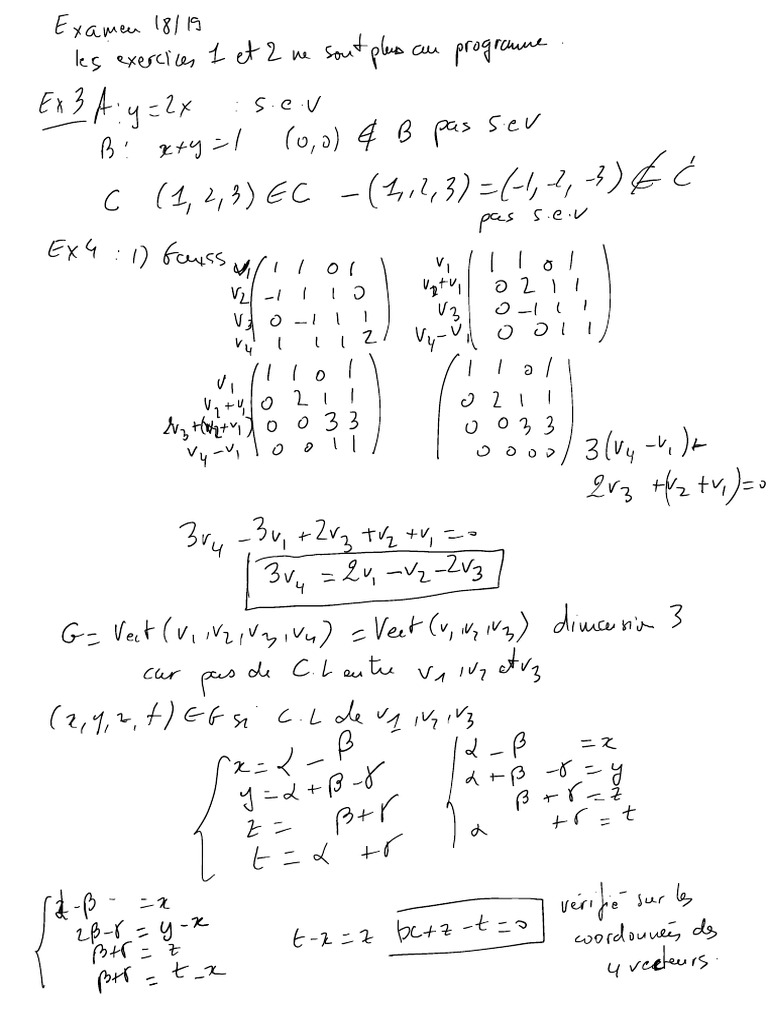 Examen 18/19
les exercices 1 et 2 ne sont plus au programme.
Ex 3 A: y=2x : s.e.v
B: x+y=1 (0,0) ∉ B pas sev
C (1,2,3) ∈ C -(1,2,3) = (-1,-2,-3) ∉ C
pas s.e.v
Ex 4 : 1) Gauss
v1 ( 1 1 0 1 )
v2 ( -1 1 1 0 )
v3 ( 0 -1 1 1 )
v4 ( 1 1 1 2 )
v1 ( 1 1 0 1 )
v2+v1 ( 0 2 1 1 )
v3 ( 0 -1 1 1 )
v4-v1 ( 0 0 1 1 )
v1 ( 1 1 0 1 )
v2+v1 ( 0 2 1 1 )
2v3+(v2+v1) ( 0 0 3 3 )
v4-v1 ( 0 0 1 1 )
( 1 1 0 1 )
( 0 2 1 1 )
( 0 0 3 3 )
( 0 0 0 0 )
3(v4-v1)+
2v3 +(v2+v1)=0
3v4 -3v1 +2v3 +v2 +v1 = 0
3v4 = 2v1 -v2 -2v3
G = Vect(v1,v2,v3,v4) = Vect(v1,v2,v3) dimension 3
car pas de C.L entre v1,v2 et v3
(x,y,z,t) ∈ G si C.L de v1,v2,v3
x = α - β
y = α + β - γ
z = β + γ
t = α + γ
α - β = x
α + β - γ = y
β + γ = z
α + γ = t
α - β = x
2β - γ = y-x
β+γ = z
β+γ = t-x
t-x = z x+z-t=0
vérifié sur les
coordonnées des
4 vecteurs.